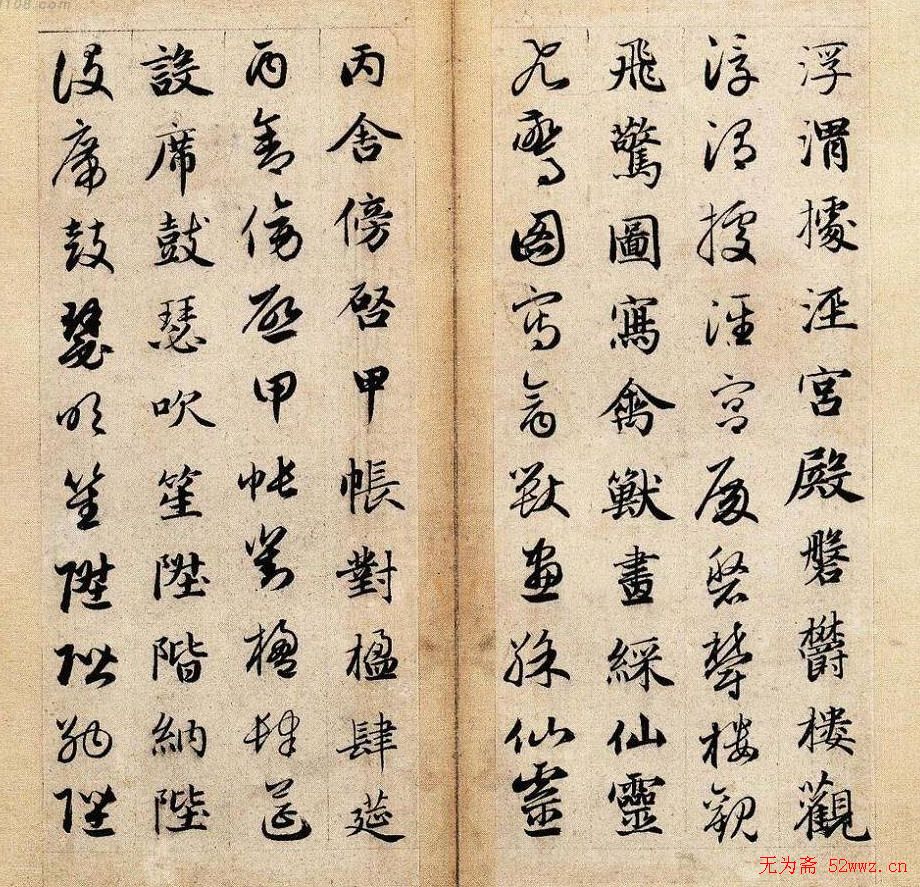 浮渭據涇宮殿磐欝樓觀
浮渭據涇宮殿磐欝樓觀
飛驚圖寫禽獸畫綵仙靈
飛驚圖寫禽獸畫綵仙靈
丙舍傍啓甲帳對楹肆莚
丙舍傍啓甲帳對楹肆莚
設席鼓瑟吹笙陞階納陛
設席鼓瑟吹笙陞階納陛
无为斋 52wwz.cn